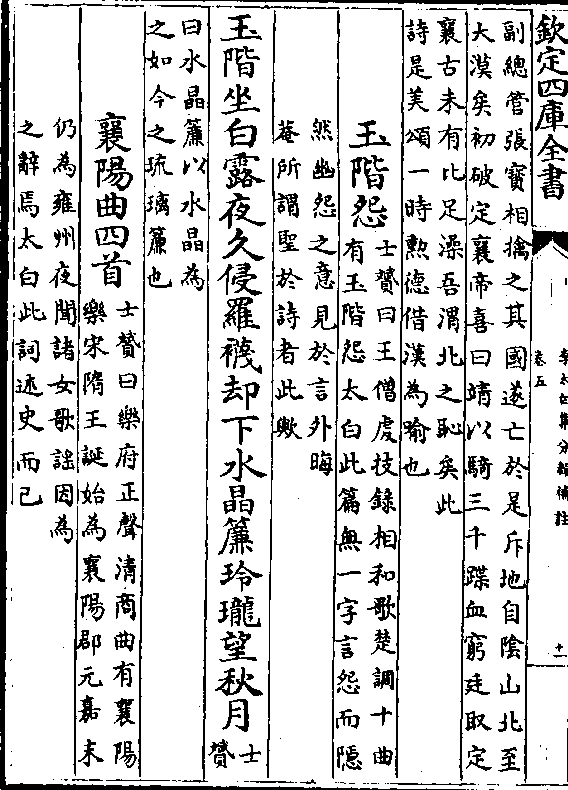 欽定四庫全書
李太白集分類補註
卷五
十一
副總管張寳相擒之其國遂亡於是斥地自隂山北至
大漠矣初破定襄帝喜曰靖以騎三千蹀血窮廷取定
襄古未有比足澡吾渭北之恥矣此
詩是美頌一時勲德借漢為喻也
玉階怨
士贇曰王僧虔技錄相和歌楚調十曲
有玉階怨太白此篇無一字言怨而隱
然幽怨之意見於言外晦
菴所謂聖於詩者此歟
玉階坐白露夜久侵羅襪却下水晶簾玲瓏望秋月
士贇
曰水晶簾以水晶為
之如今之琉璃簾也
襄陽曲四首
士贇曰樂府正聲清商曲有襄陽
樂宋隋王誕始為襄陽郡元嘉末
仍為雍州夜聞諸女歌謡因為
之辭焉太白此詞述史而已